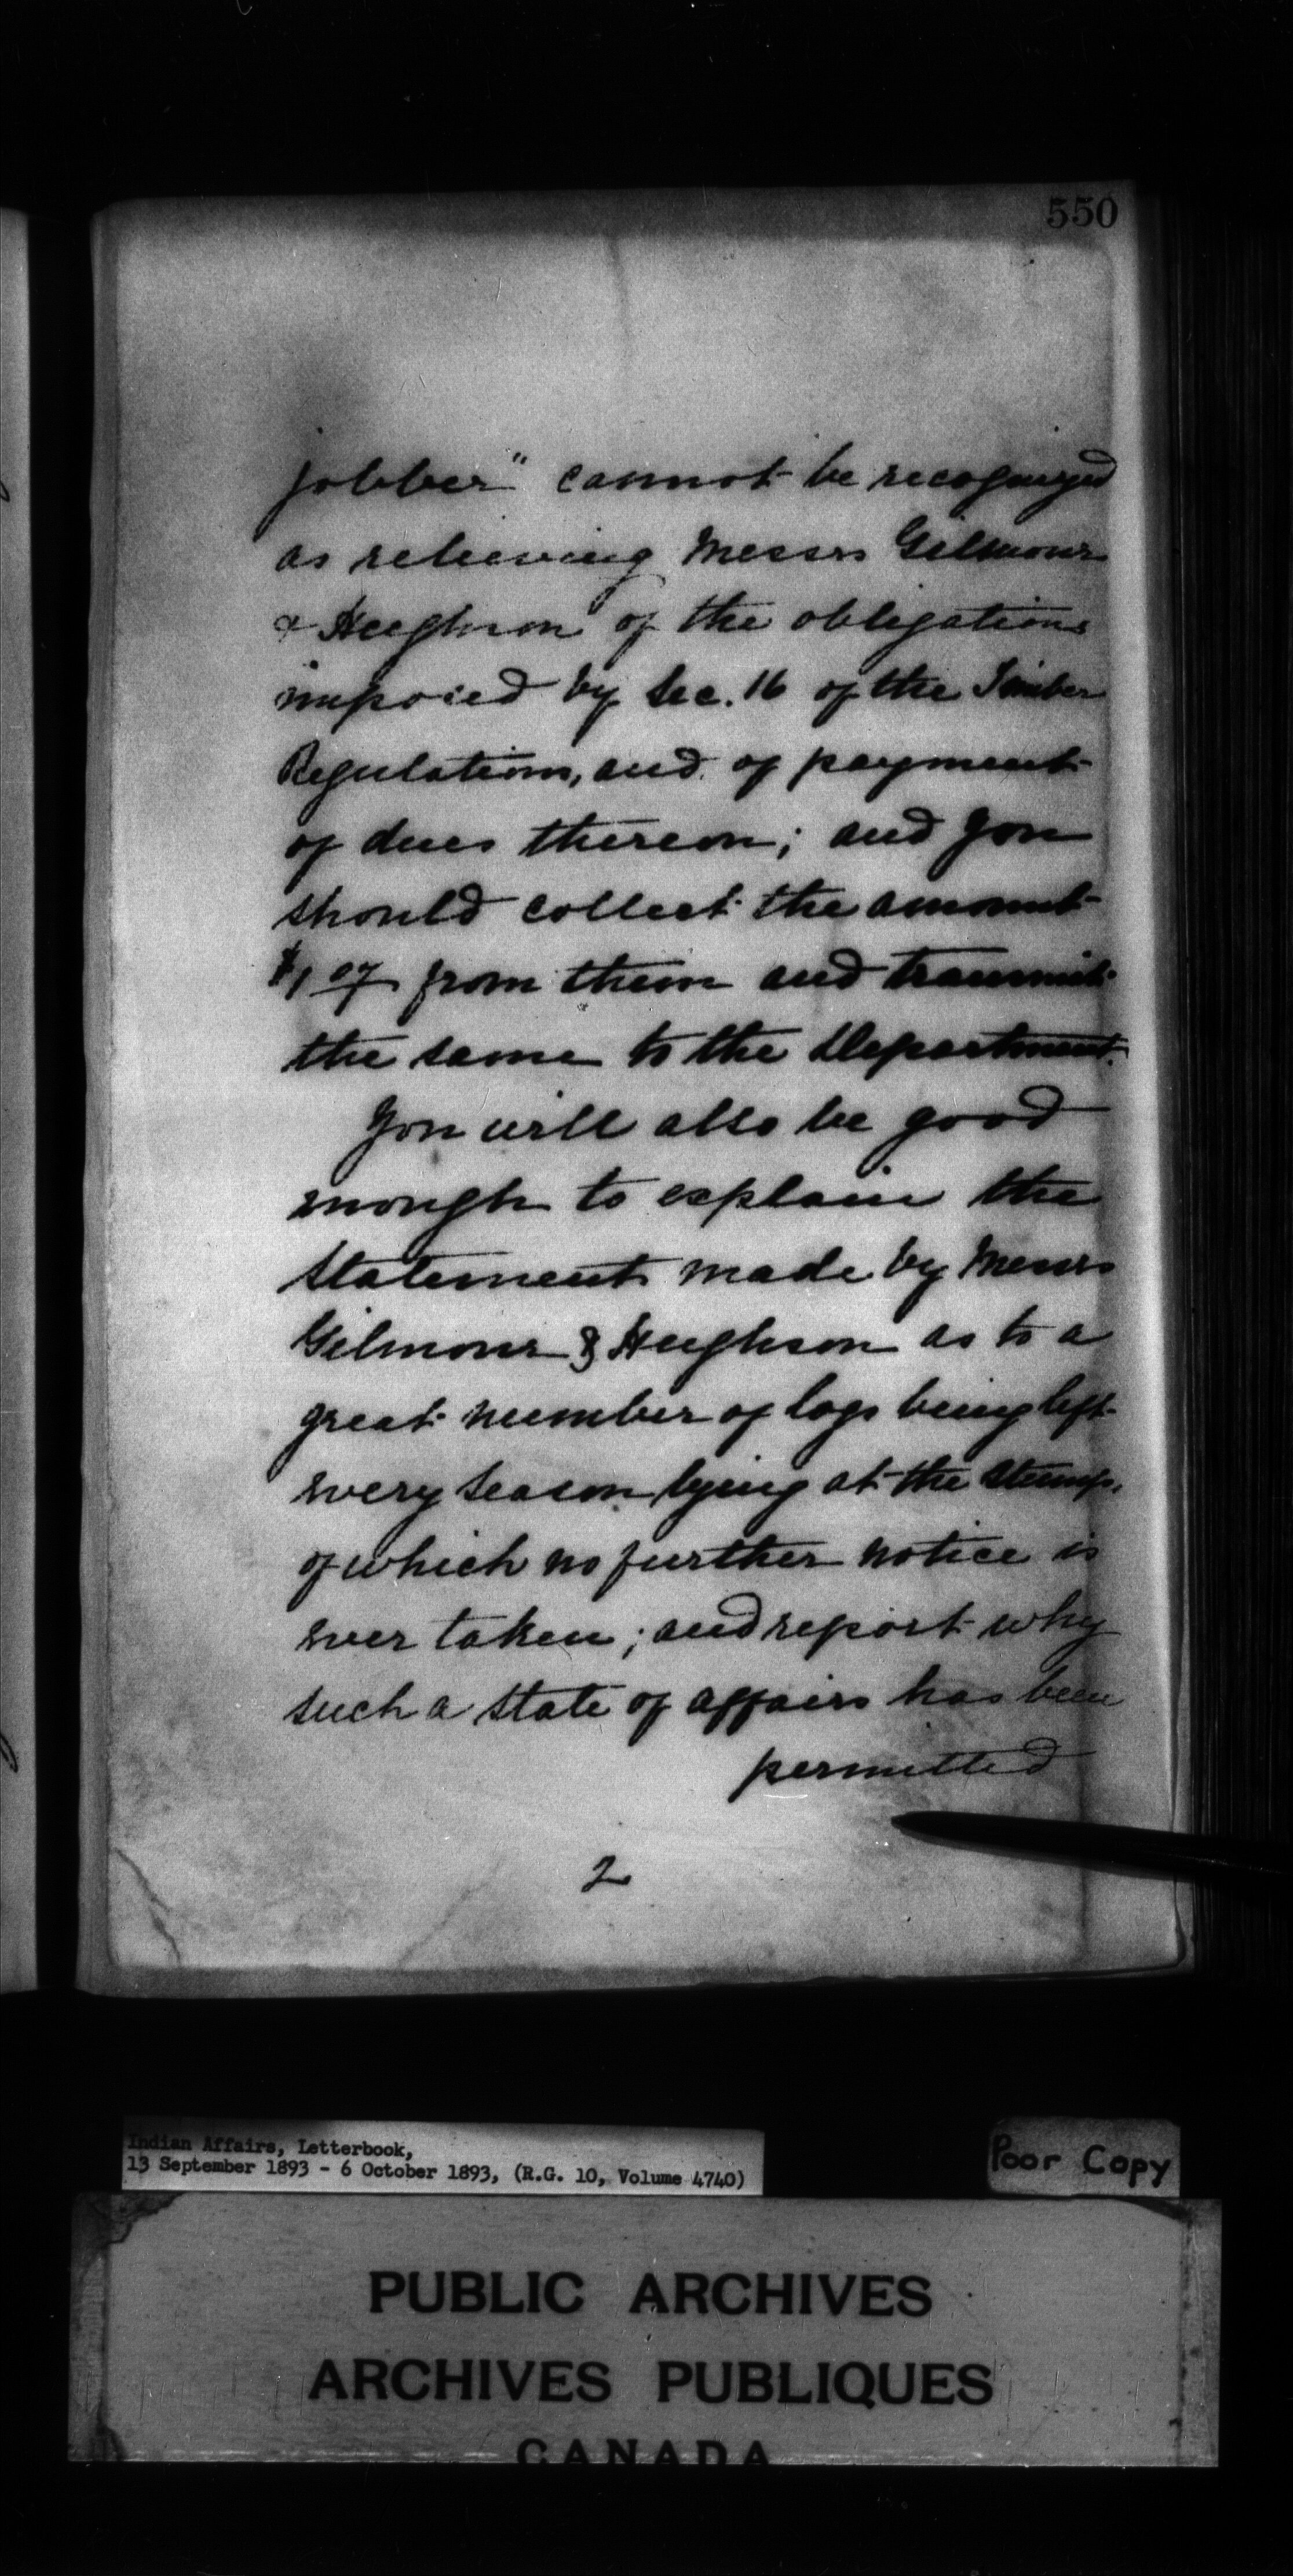 550
jobber" cannot be recognized
as relieving Messrs Gilmour
& Hughson of the obligations
imposed by Sec. 16 of the Timber
Regulations, and of payment
of dues thereon; and you
should collect the amount
$1.07 from them and transmit
the same to the Department.
You will also be good
enough to explain the
statement made by Messrs
Gilmour & Hughson as to a
great number of logs being left
every season lying at the stump,
of which no further notice is
ever taken; and report why
such a state of affairs has been
permitted
2
Indian Affairs, Letterbook,
13 September 1893 - 6 October 1893, (R.G. 10, Volume 4740)
Poor Copy
PUBLIC ARCHIVES
ARCHIVES PUBLIQUES
CANADA